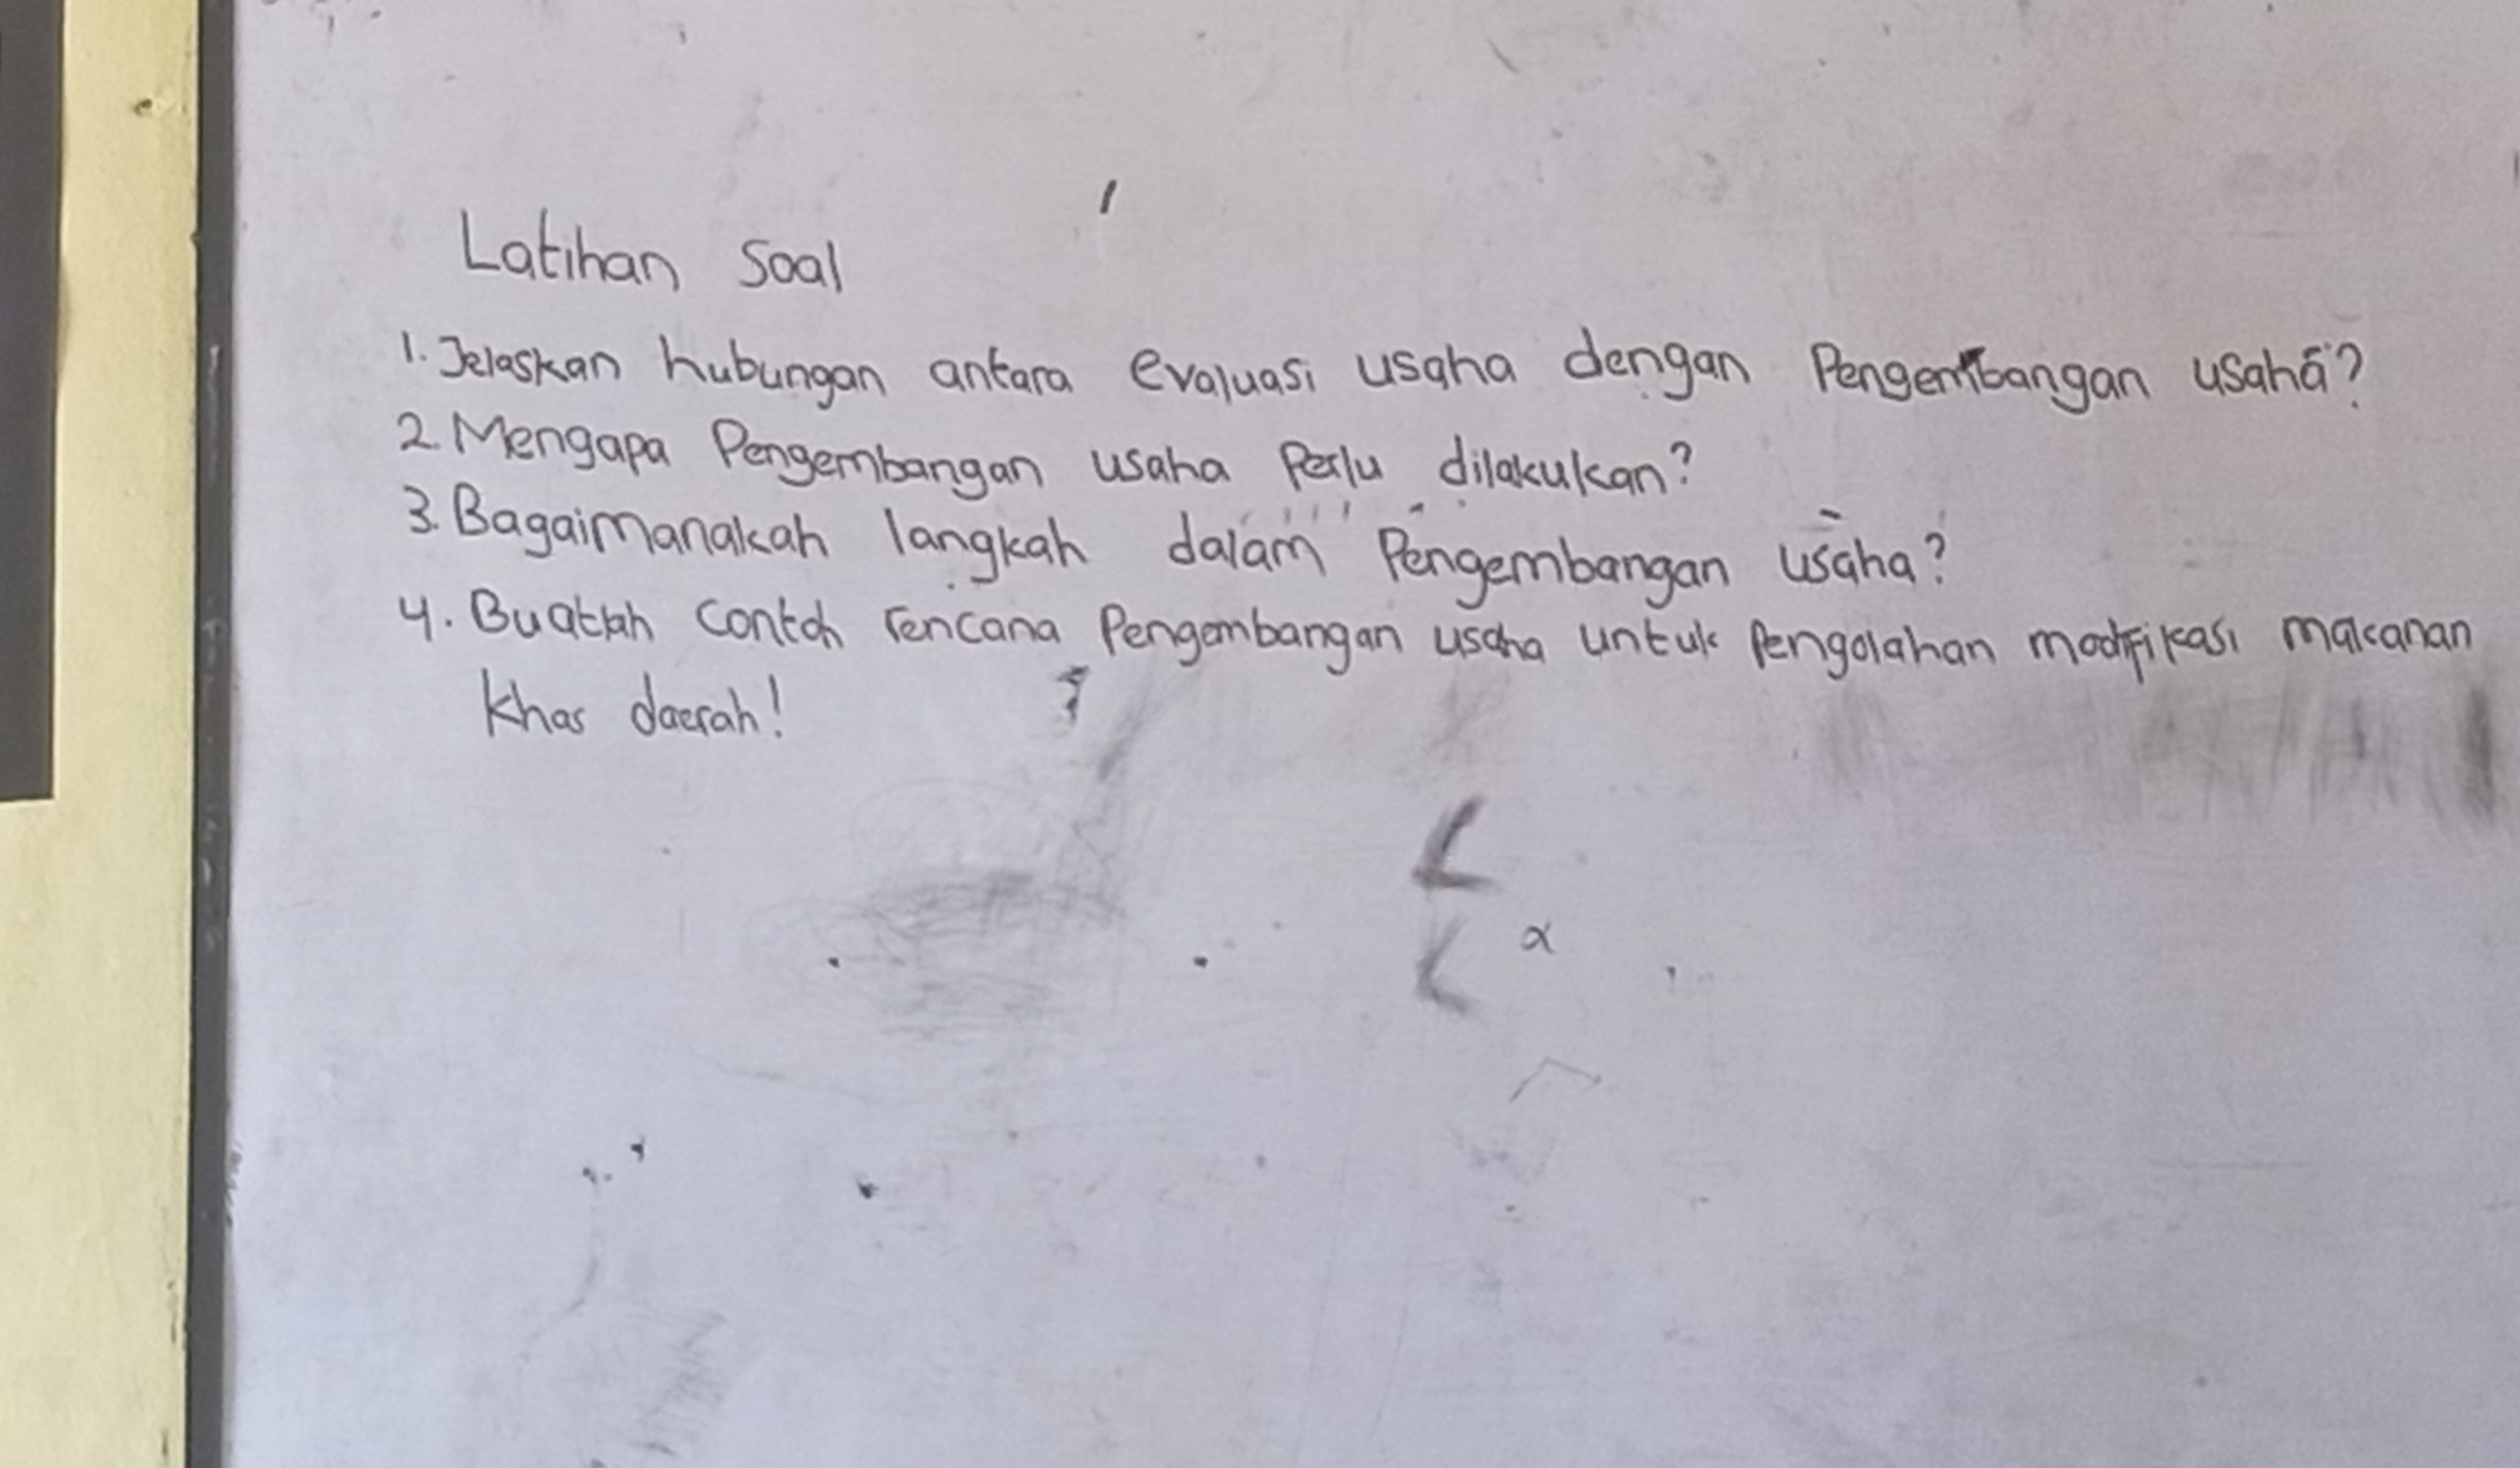 Latihan Soal
1. Jelaskan hubungan antara evaluasi usaha dengan Pengembangan usaha?
2. Mengapa Pengembangan usaha Perlu dilakukan?
3. Bagaimanakah langkah dalam Pengembangan usaha?
4. Buatlah contoh rencana Pengembangan usaha untuk Pengolahan modifikasi makanan
khas daerah!